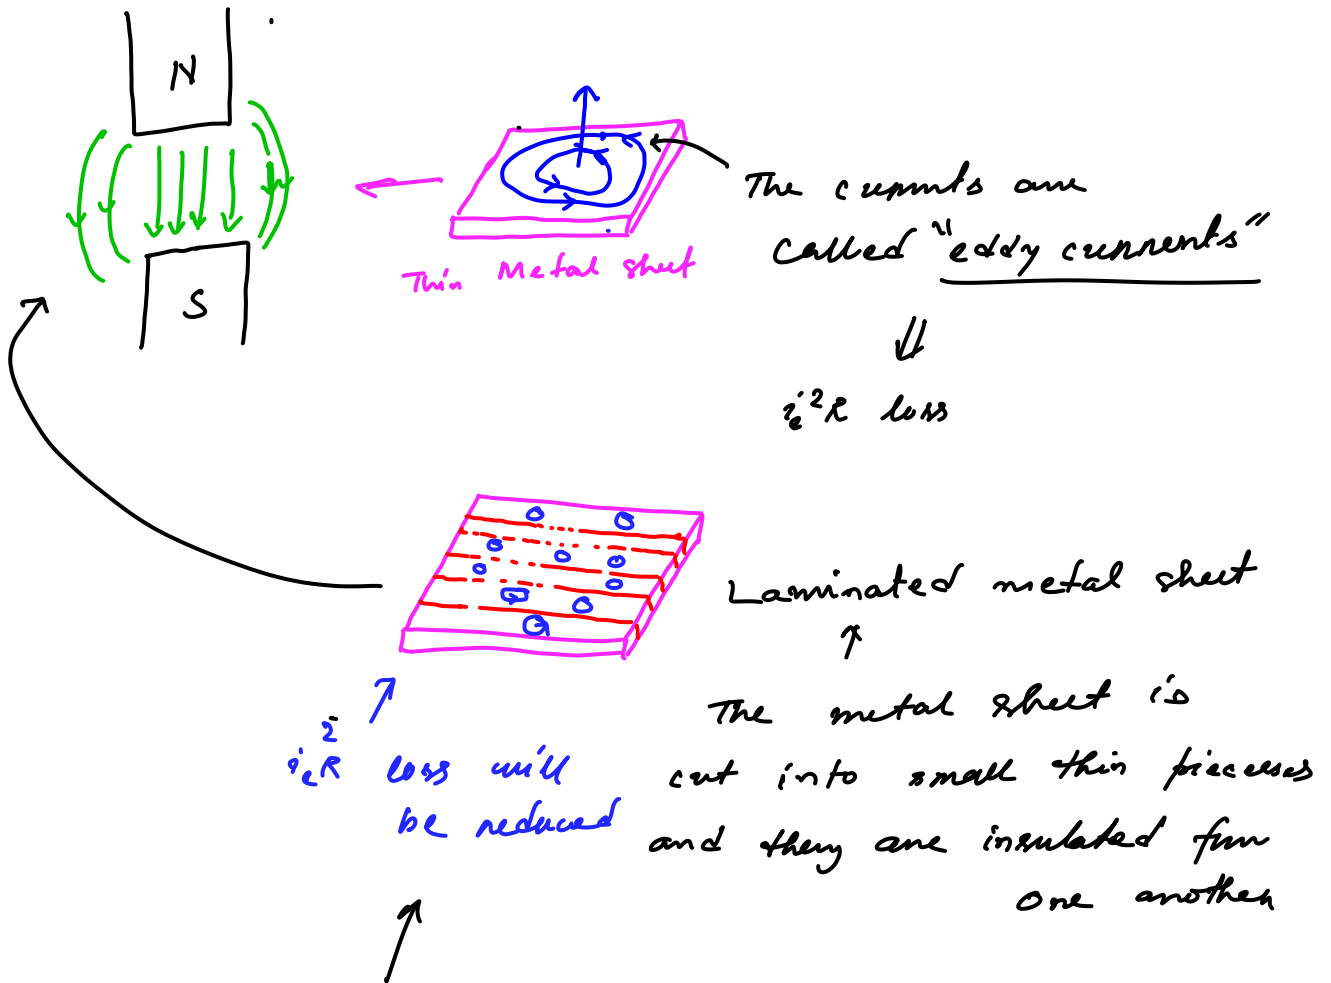 N
S
Thin Metal sheet
The currents are
called "eddy currents"
iₑ²R loss
Laminated metal sheet
The metal sheet is
cut into small thin piecesses
and they are insulated from
one another
iₑ²R loss will
be reduced